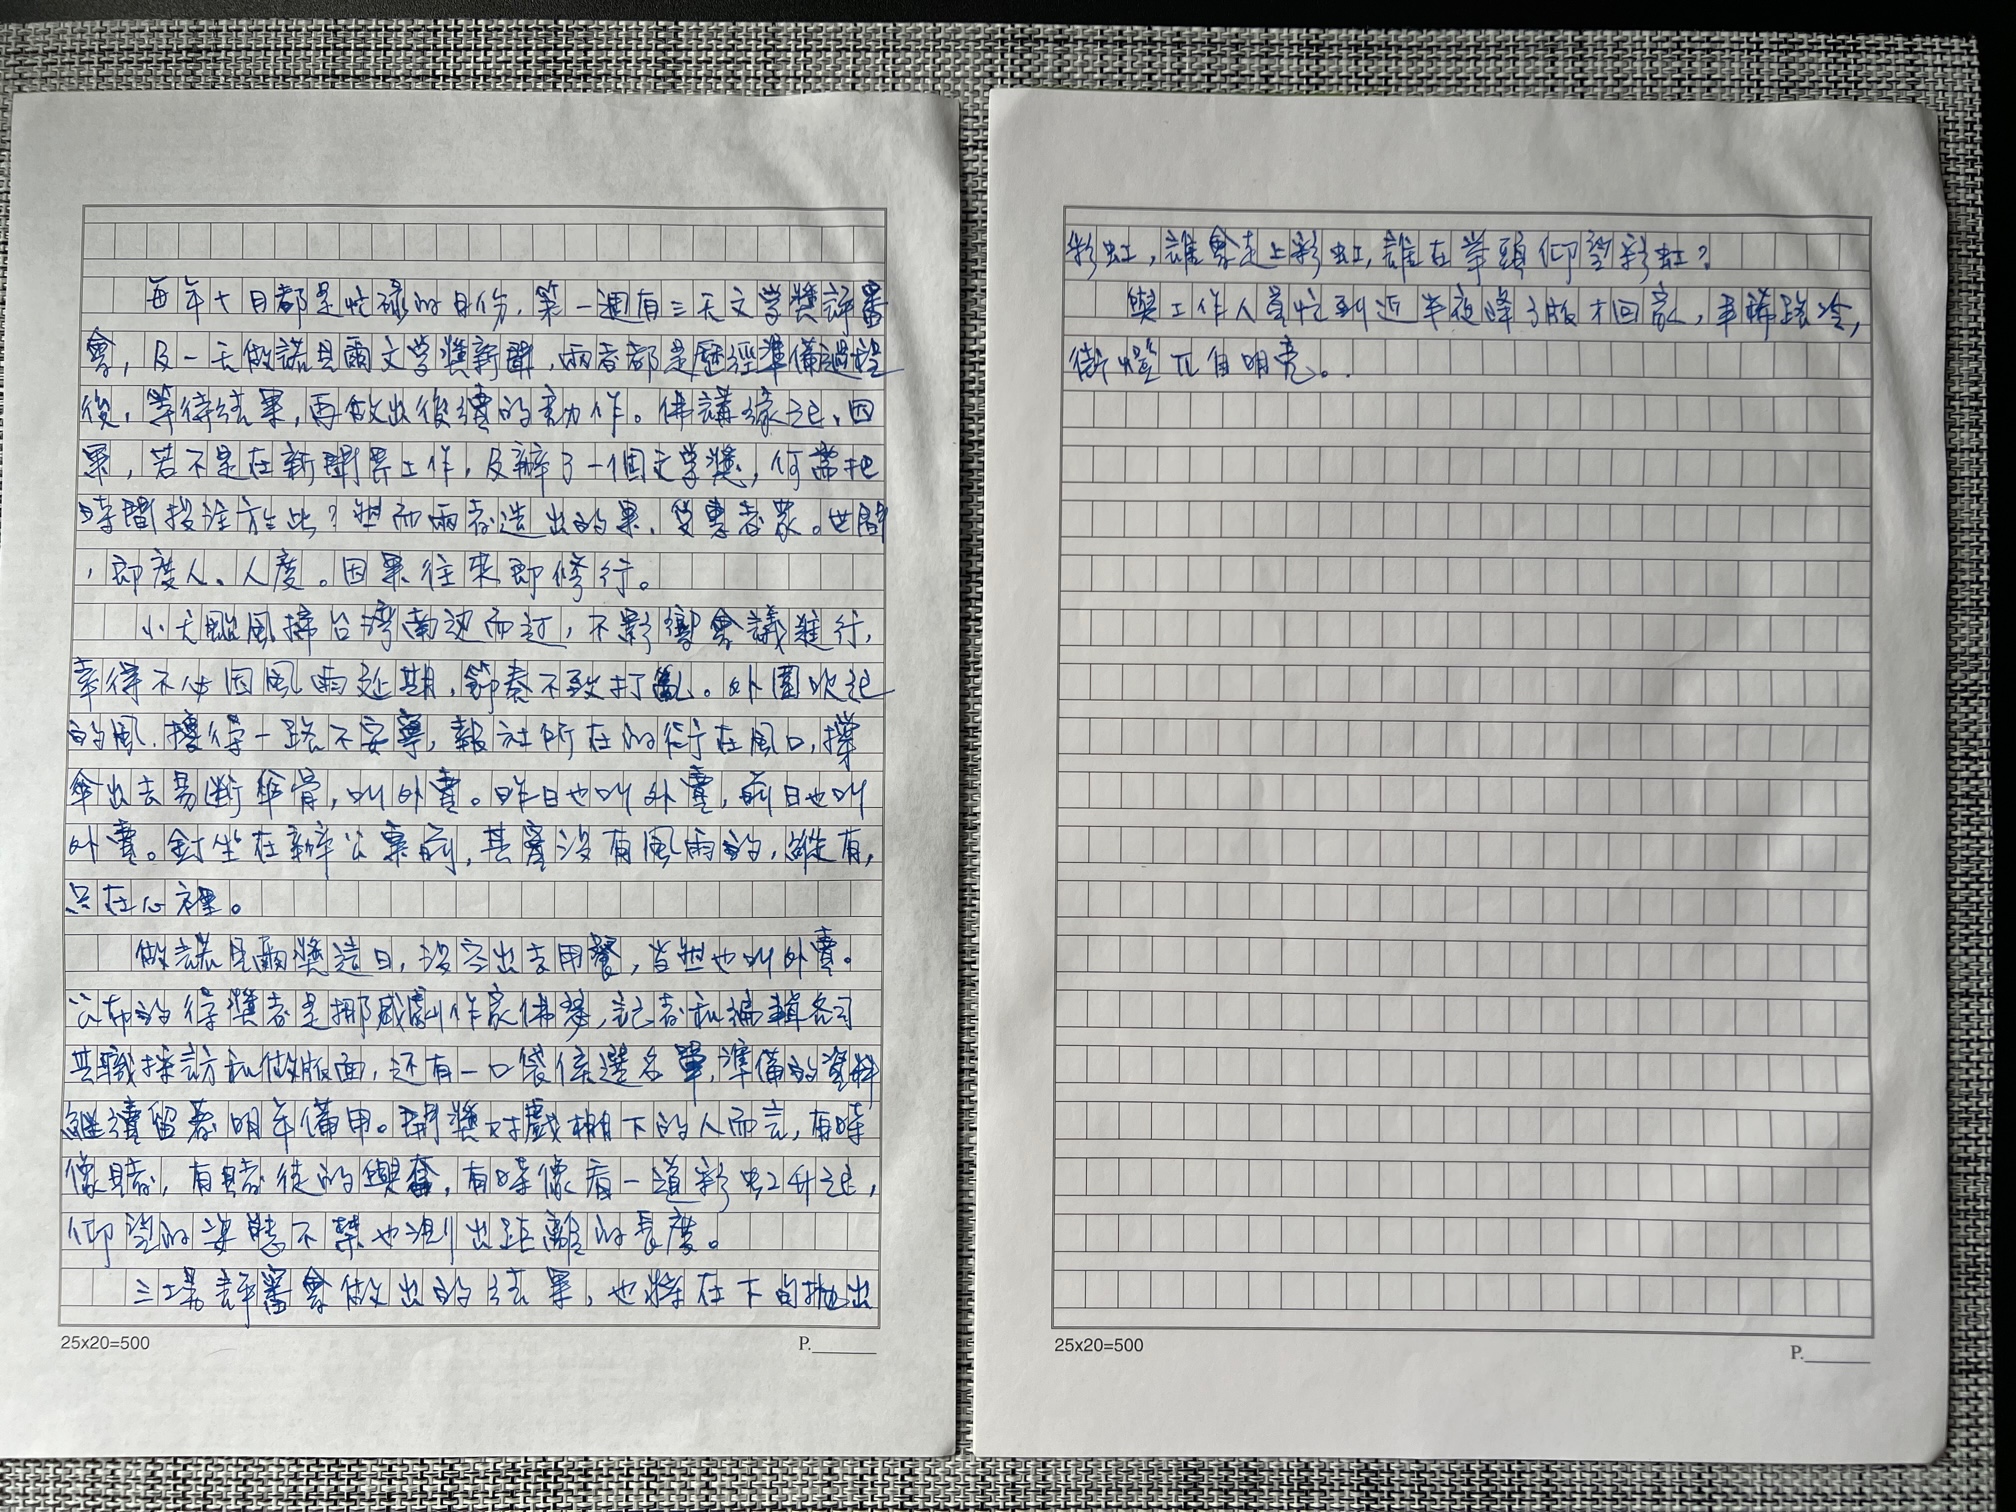 每年十月都是忙碌的月份,第一週有三天文学獎評審
會,及一天做諾貝爾文学獎新聞,兩者都是歷經準備過程
後,等待结果,再做出後續的動作。佛講緣起、因
果,若不是在新聞界工作,及辦了一個文学獎,何嘗把
時間投注於此?然而兩者造出的果,受惠者眾。世間
,即度人、人度。因果往來即修行。
小犬颱風掃台灣南邊而过,不影響會議進行,
幸得不必因風雨延期,節奏不致打亂。外圍吹起
的風,擾得一路不安寧,報社所在的街在風口,撐
傘出去易断傘骨,叫外賣。昨日也叫外賣,前日也叫
外賣。釘坐在辦公桌前,其實沒有風雨的,縱有,
只在心裡。
做諾貝爾獎這日,沒空出去用餐,当然也叫外賣。
公布的得獎者是挪威劇作家佛瑟,記者和编輯各司
其職採訪和做版面,还有一口袋候選名單,準備的資料
繼續留著明年備用。開獎对戲棚下的人而言,有時
像賭,有賭徒的興奮,有時像看一道彩虹升起,
仰望的姿態不禁也測出距離的長度。
三場評審會做出的结果,也將在下旬拋出
彩虹,誰會走上彩虹,誰在举頭仰望彩虹?
與工作人員忙到近半夜降了版才回家,車稀路冷,
街燈兀自明亮。